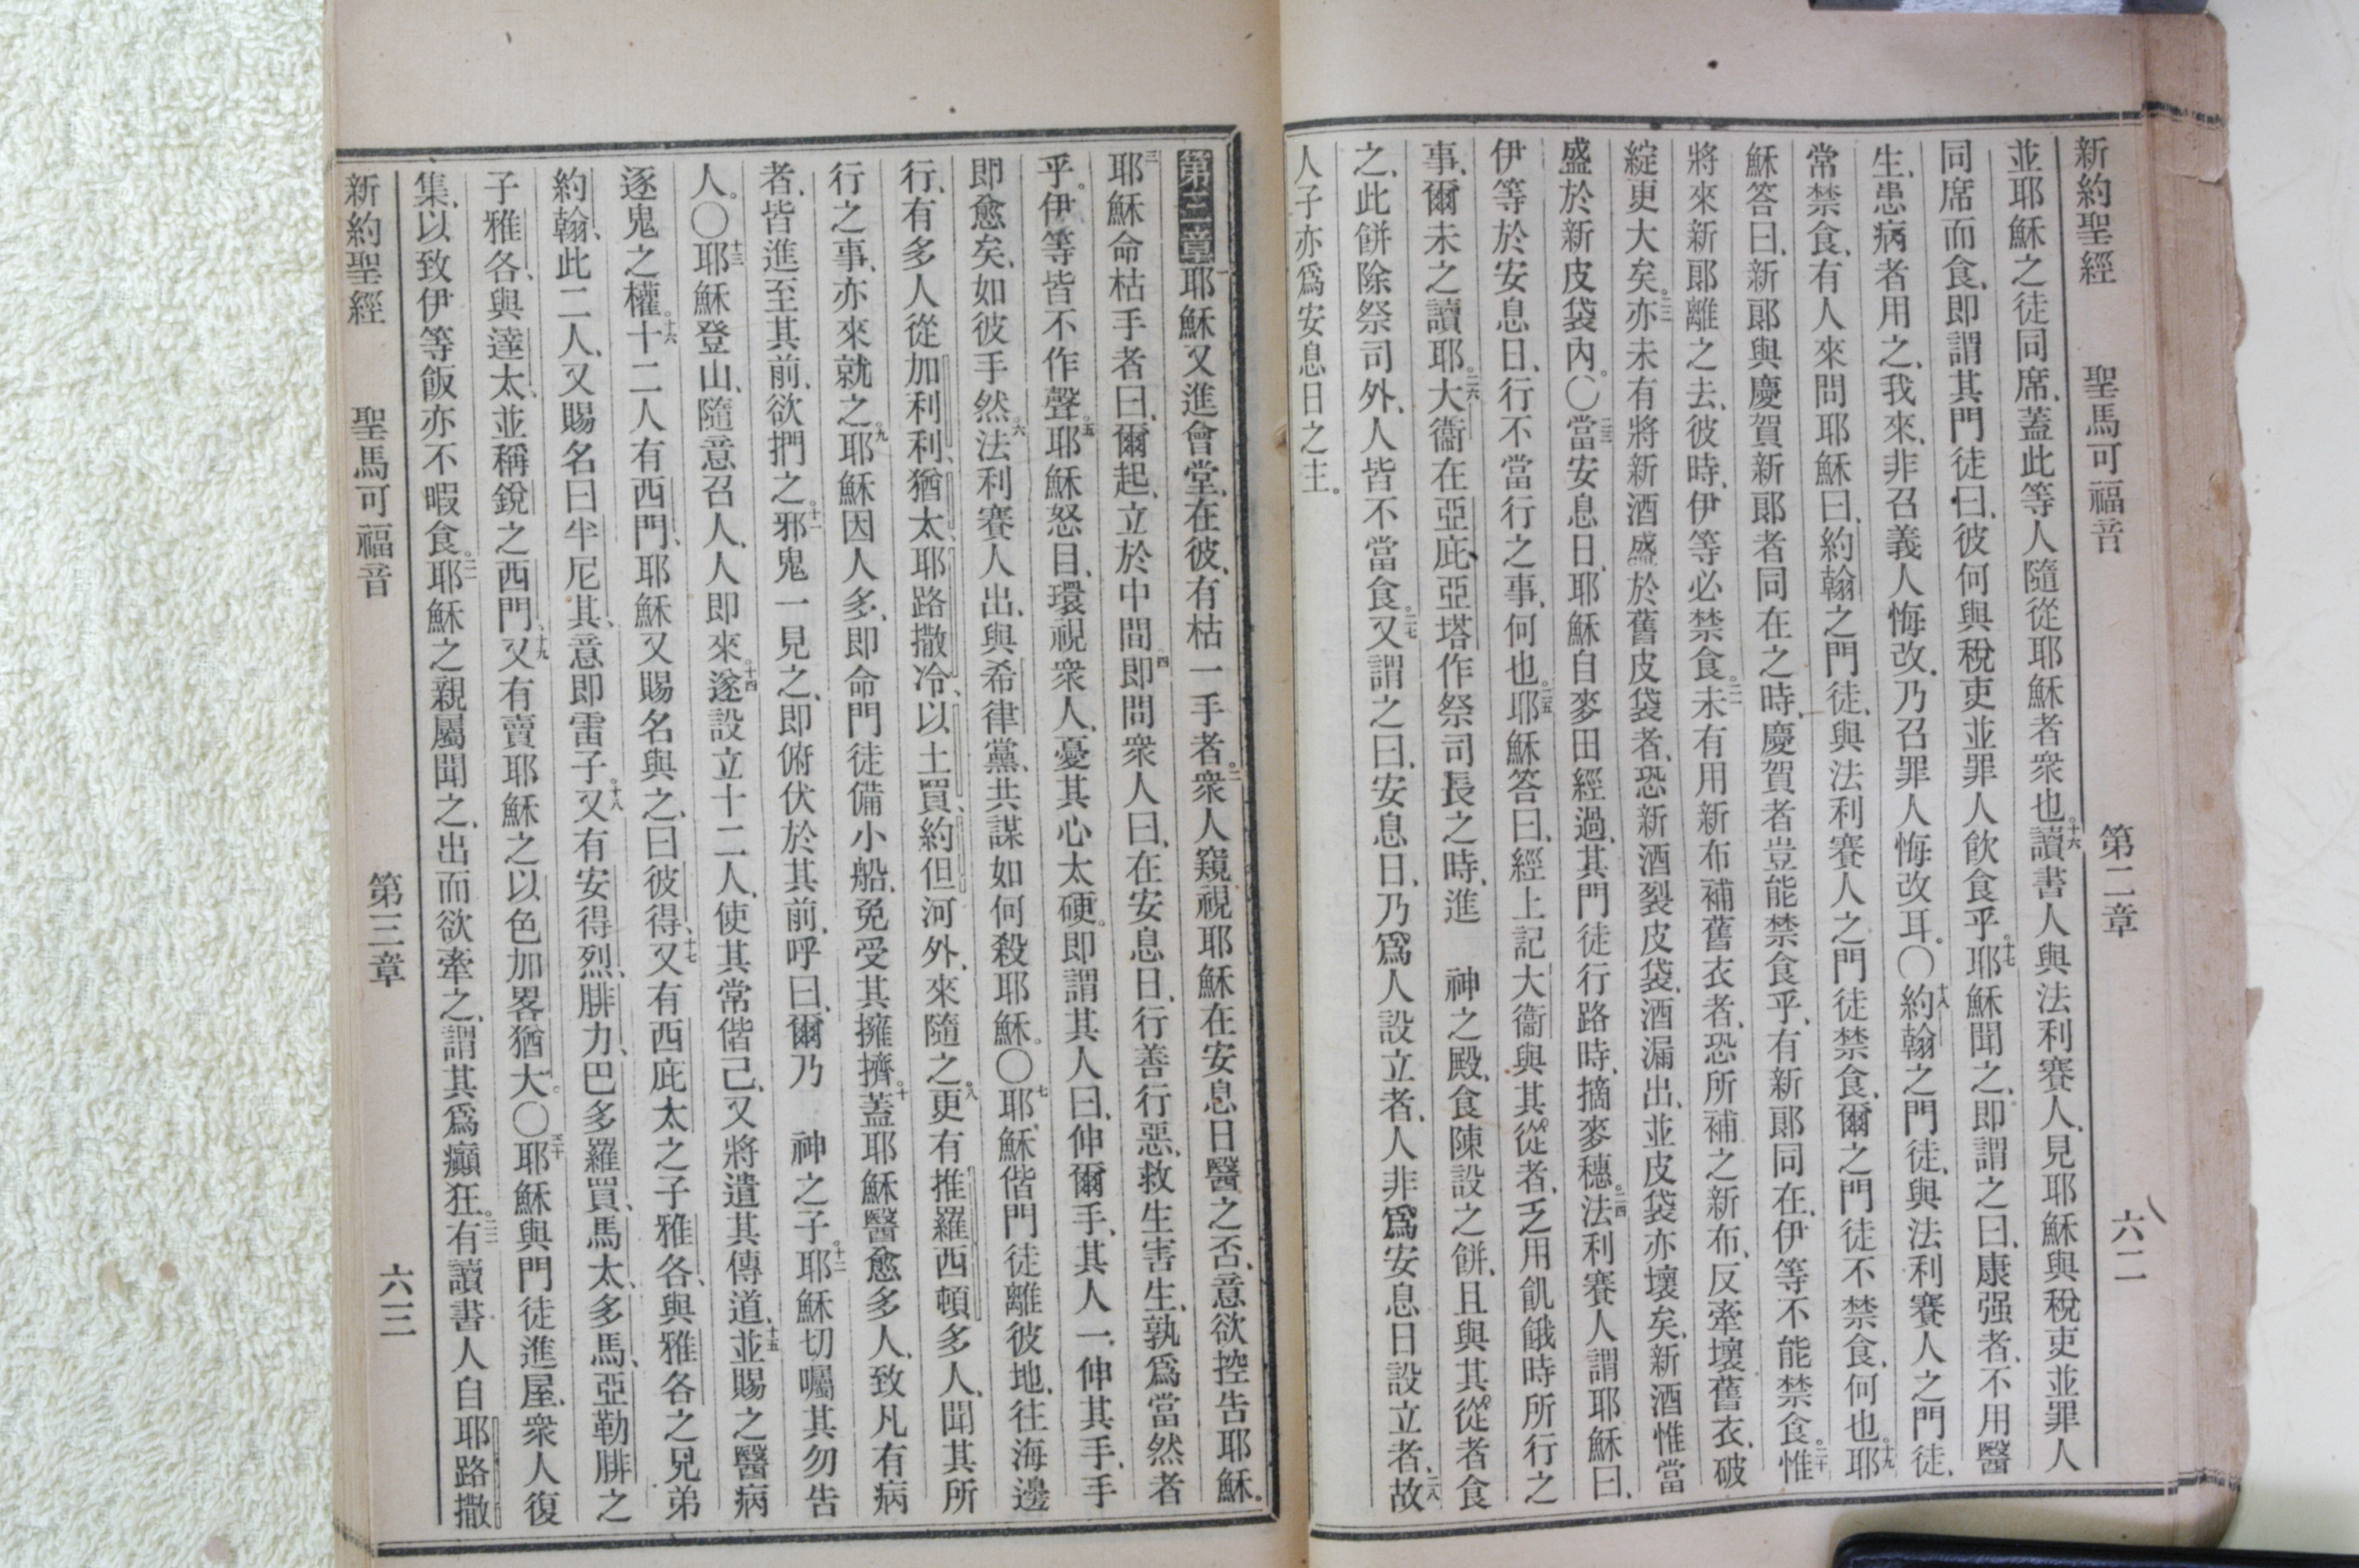 新約聖經 聖馬可福音 第二章 六二
並耶穌之徒同席、蓋此等人隨從耶穌者衆也。十六讀書人與法利賽人、見耶穌與稅吏並罪人
同席而食、即謂其門徒曰、彼何與稅吏並罪人飲食乎。十七耶穌聞之、即謂之曰、康强者、不用醫
生、患病者用之、我來、非召義人悔改、乃召罪人悔改耳。〇十八約翰之門徒、與法利賽人之門徒、
常禁食、有人來問耶穌曰、約翰之門徒、與法利賽人之門徒禁食、爾之門徒不禁食、何也。十九耶
穌答曰、新郞與慶賀新郞者同在之時、慶賀者豈能禁食乎、有新郞同在、伊等不能禁食。二十惟
將來新郞離之去、彼時、伊等必禁食。二一未有用新布補舊衣者、恐所補之新布、反牽壞舊衣、破
綻更大矣。二二亦未有將新酒盛於舊皮袋者、恐新酒裂皮袋、酒漏出、並皮袋亦壞矣、新酒惟當
盛於新皮袋內。〇二三當安息日、耶穌自麥田經過、其門徒行路時、摘麥穗。二四法利賽人謂耶穌曰、
伊等於安息日、行不當行之事、何也。二五耶穌答曰、經上記大衞與其從者、乏用飢餓時所行之
事、爾未之讀耶。二六大衞在亞庇亞塔作祭司長之時、進 神之殿、食陳設之餠、且與其從者食
之、此餠除祭司外、人皆不當食。二七又謂之曰、安息日、乃爲人設立者、人非爲安息日設立者、二八故
人子亦爲安息日之主。
第三章一耶穌又進會堂、在彼、有枯一手者。二衆人窺視耶穌在安息日醫之否、意欲控告耶穌。
三耶穌命枯手者曰、爾起、立於中間四即問衆人曰、在安息日、行善行惡、救生害生、孰爲當然者
乎。伊等皆不作聲。五耶穌怒目、環視衆人、憂其心太硬。即謂其人曰、伸爾手、其人一伸其手、手
即愈矣、如彼手然。六法利賽人出、與希律黨、共謀如何殺耶穌。〇七耶穌偕門徒離彼地、往海邊
行、有多人從加利利、猶太、耶路撒冷、以土買、約但河外、來隨之。八更有推羅西頓多人、聞其所
行之事、亦來就之。九耶穌因人多、即命門徒備小船、免受其擁擠。十蓋耶穌醫愈多人、致凡有病
者、皆進至其前、欲捫之。十一邪鬼一見之、即俯伏於其前、呼曰、爾乃 神之子。十二耶穌切囑其勿告
人。〇十三耶穌登山、隨意召人、人即來。十四遂設立十二人、使其常偕己、又將遣其傳道、十五並賜之醫病
逐鬼之權。十六十二人有西門、耶穌又賜名與之、曰彼得、十七又有西庇太之子雅各、與雅各之兄弟
約翰、此二人、又賜名曰半尼其、意即雷子。十八又有安得烈、腓力、巴多羅買、馬太、多馬、亞勒腓之
子雅各、與達太、並稱銳之西門、十九又有賣耶穌之以色加畧猶大。〇二十耶穌與門徒進屋、衆人復
集、以致伊等飯亦不暇食。二一耶穌之親屬聞之、出而欲牽之、謂其爲癲狂。二二有讀書人自耶路撒
新約聖經 聖馬可福音 第三章 六三